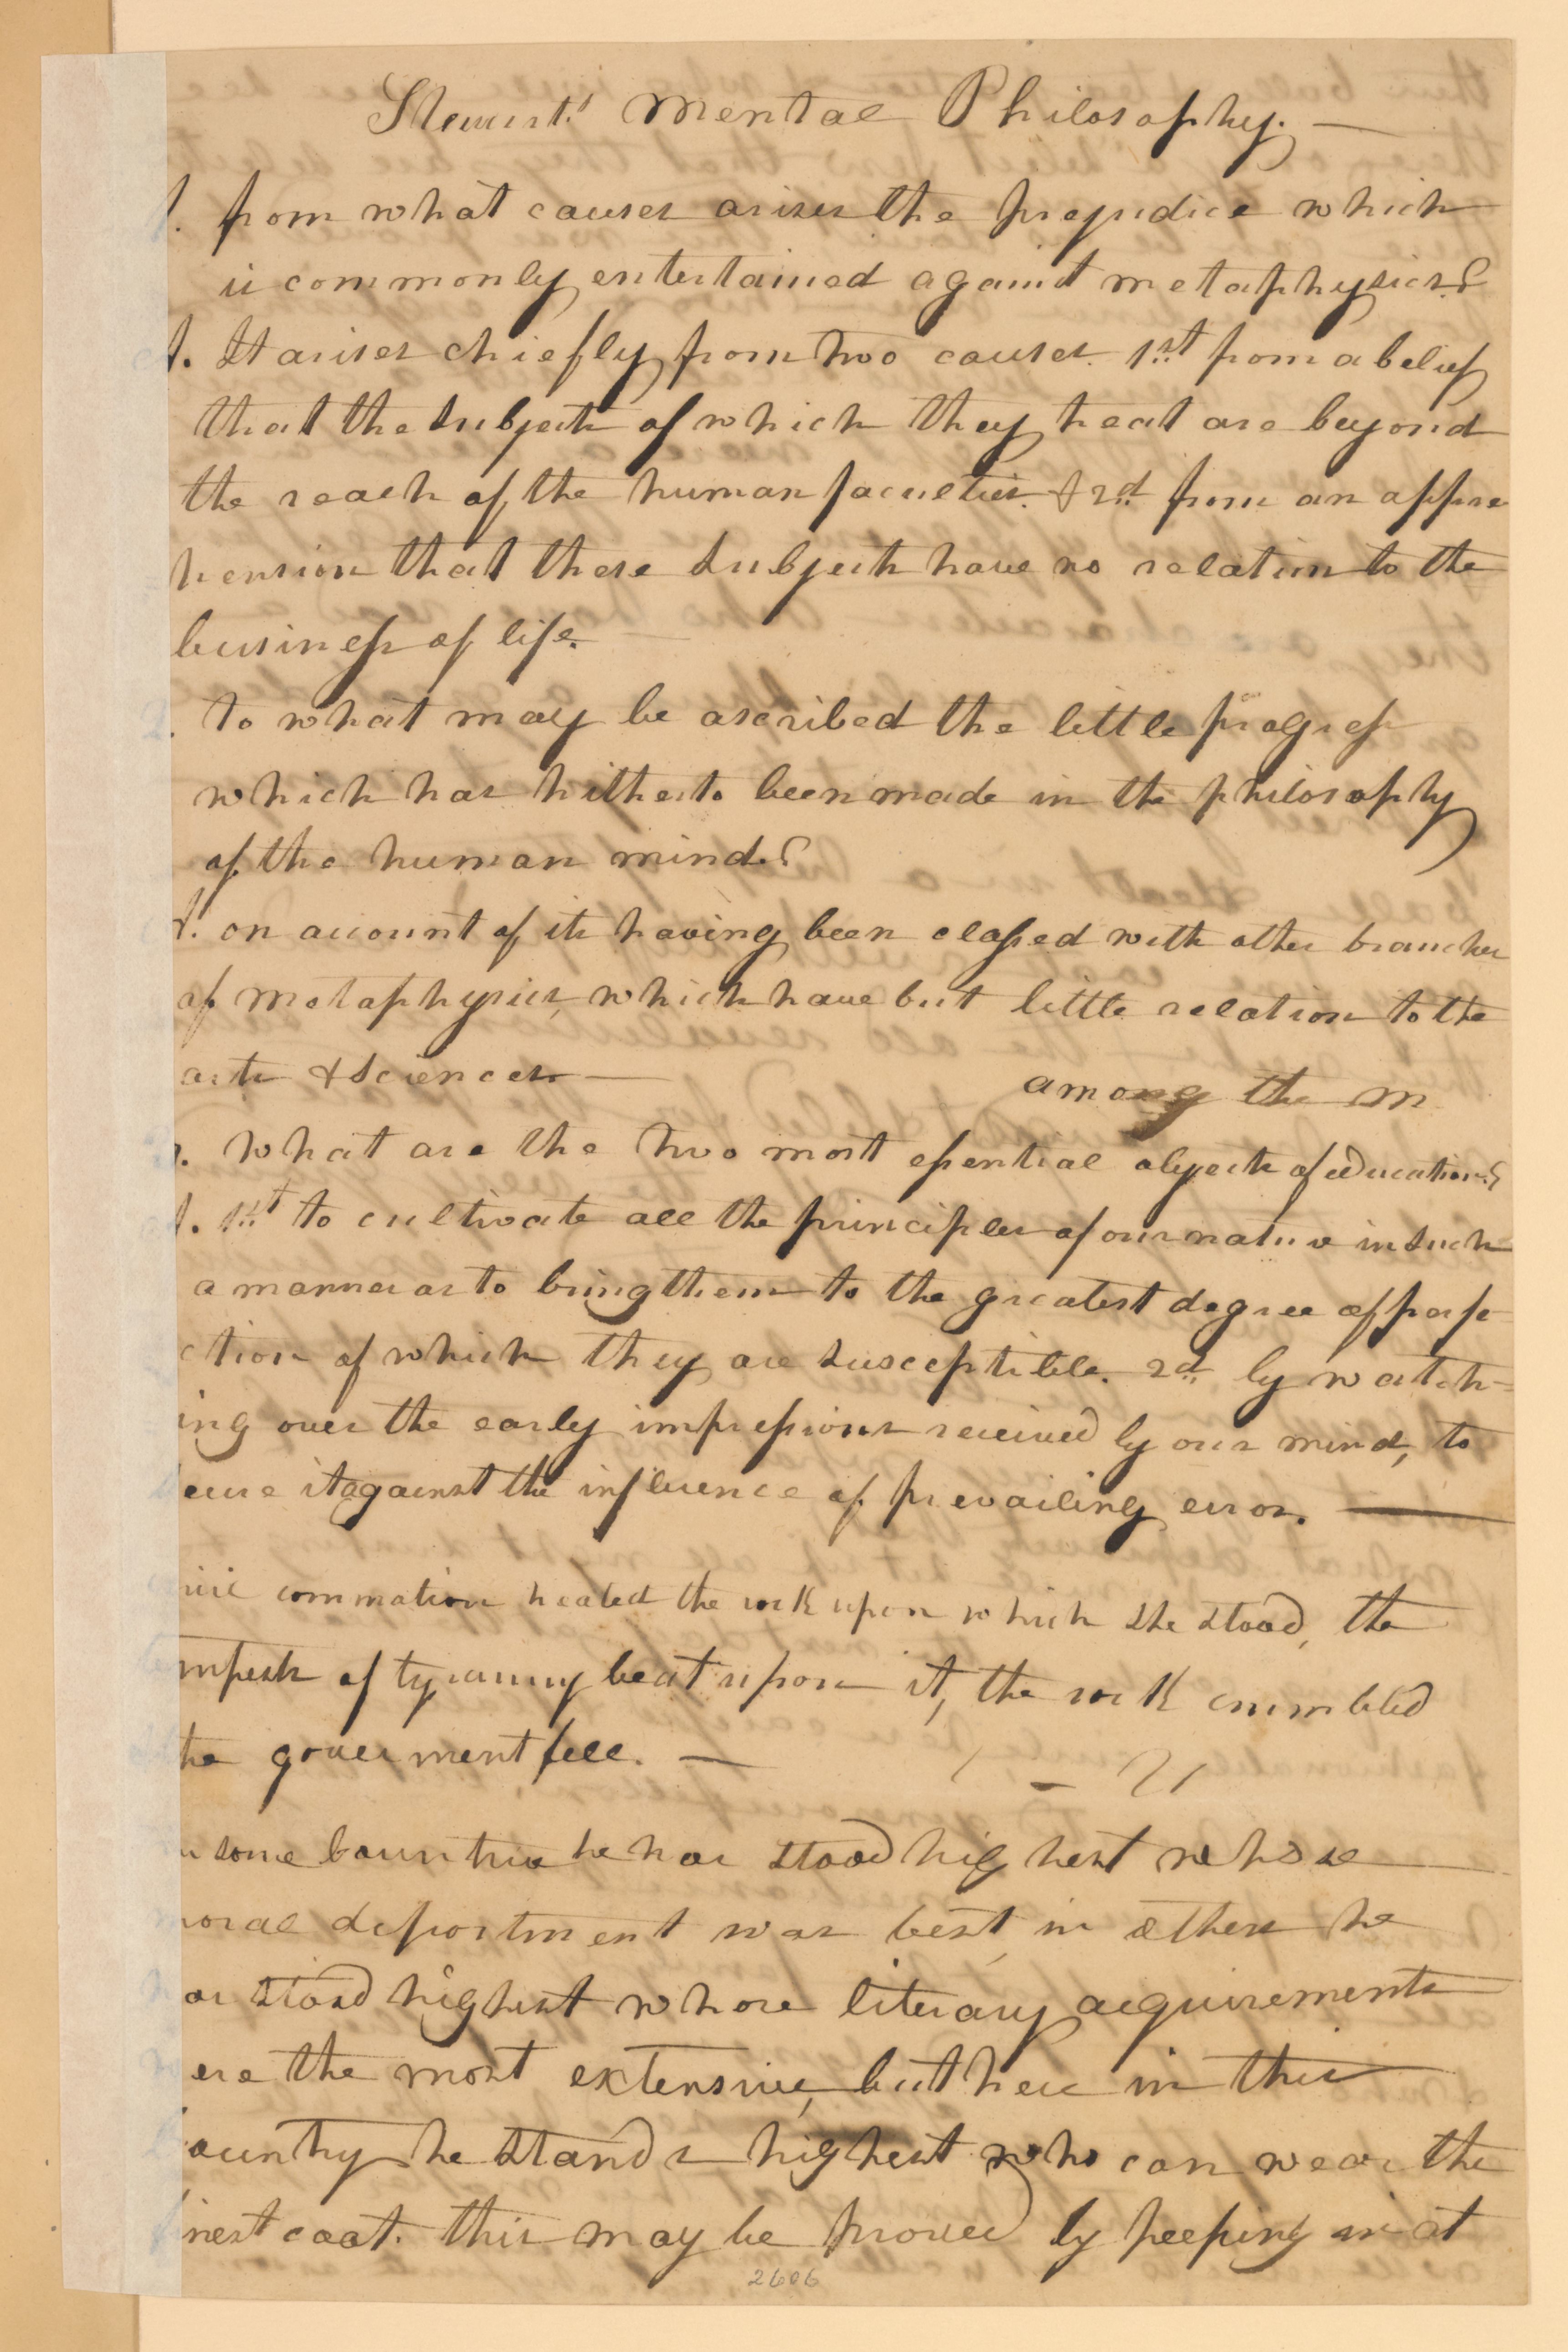 Stewarts Mental Philosophy. —
from what causes arises the prejudice which
is commonly entertained against metaphysics?
A. It arises chiefly from two causes. 1st from a belief
that the subjects of which they treat are beyond
the reach of the human faculties. & 2d from an appre
hension that these subjects have no relation to the
business of life. —
2. to what may be ascribed the little progress
which has hitherto been made in the philosophy
of the human mind?
A. on account of its having been classed with other branches
of metaphysics, which have but little relation to the
arts & sciences —
among the m
what are the two most essential objects of education?
A. 1st to cultivate all the principles of our nature in such
a manner as to bring them to the greatest degree of perfe
ction of which they are susceptible. 2d by watch-
ing over the early impressions received by our mind, to
secure it against the influence of prevailing error. —
commotion heated the rock upon which she stood, the
tempests of tyranny beat upon it, the rock crumbled
the goverment fell. —
some countries he has stood highest whose
moral deportment was best, in others he
has stood highest whose literary acquirements
were the most extensive, but here in this
country he stands highest who can wear the
finest coat. this may be proved by peeping in at
2606